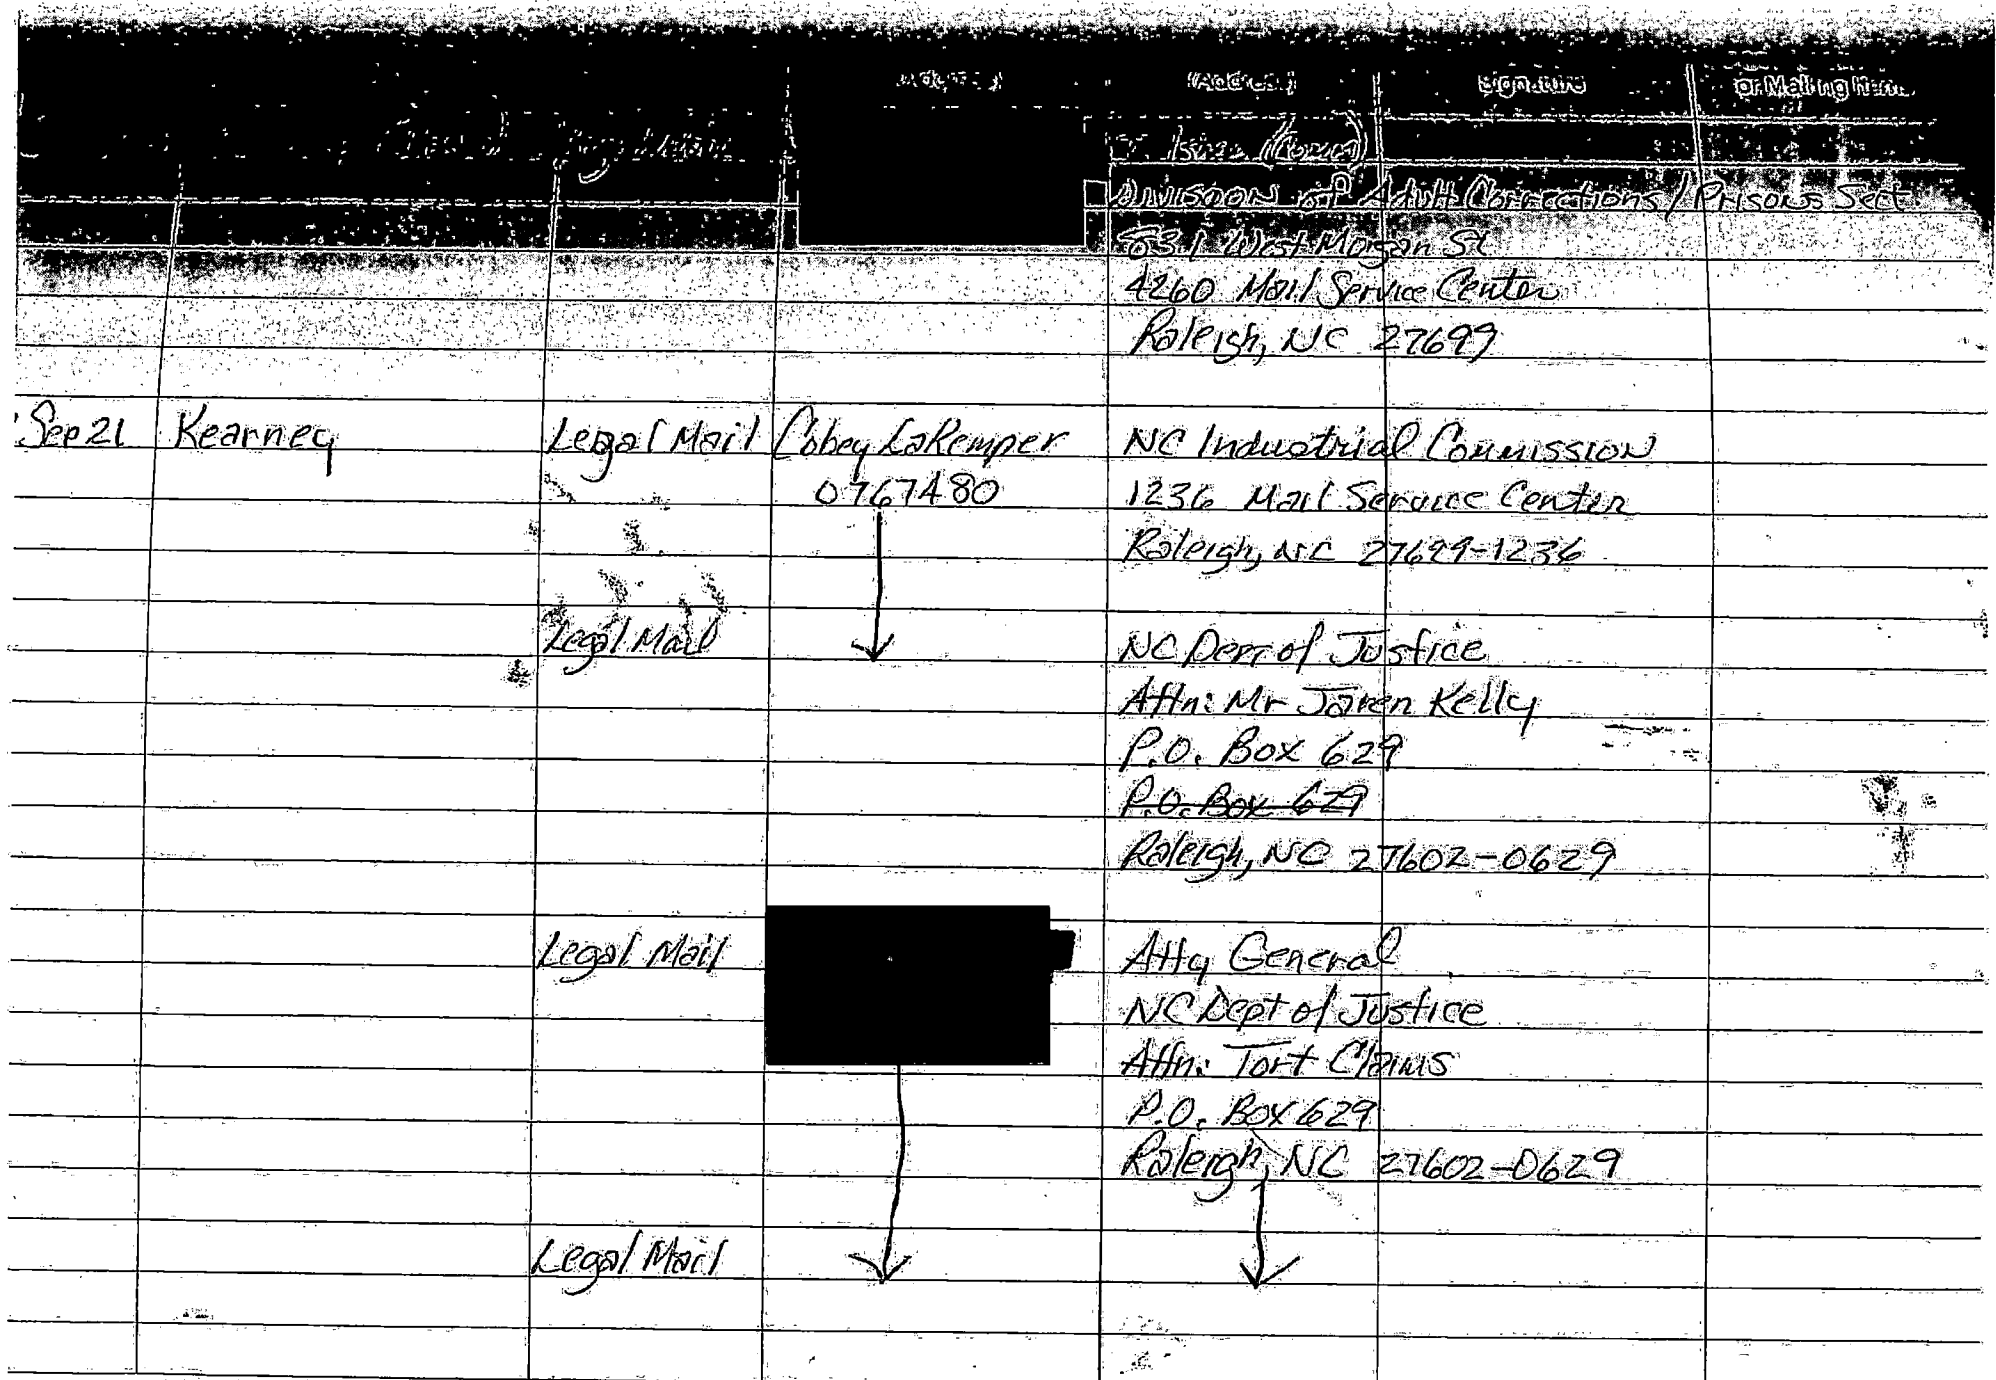 (Address) Signature or Mailing Item
Division of Adult Corrections / Prisons Sect
831 West Morgan St
4260 Mail Service Center
Raleigh, NC 27699
Sep 21 Kearney Legal Mail Cobey LaKemper NC Industrial Commission
0767480 1236 Mail Service Center
Raleigh, NC 27699-1236
Legal Mail NC Dept of Justice
Attn: Mr Jaren Kelly
P.O. Box 629
P.O. Box 629
Raleigh, NC 27602-0629
Legal Mail Atty General
NC Dept of Justice
Attn: Tort Claims
P.O. Box 629
Raleigh, NC 27602-0629
Legal Mail